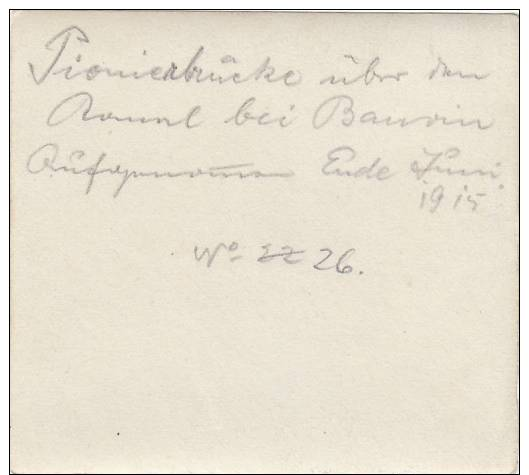 Pionierbrücke über den
Kanal bei Bauvin
Aufgenommen Ende Juni
1915
No 26.